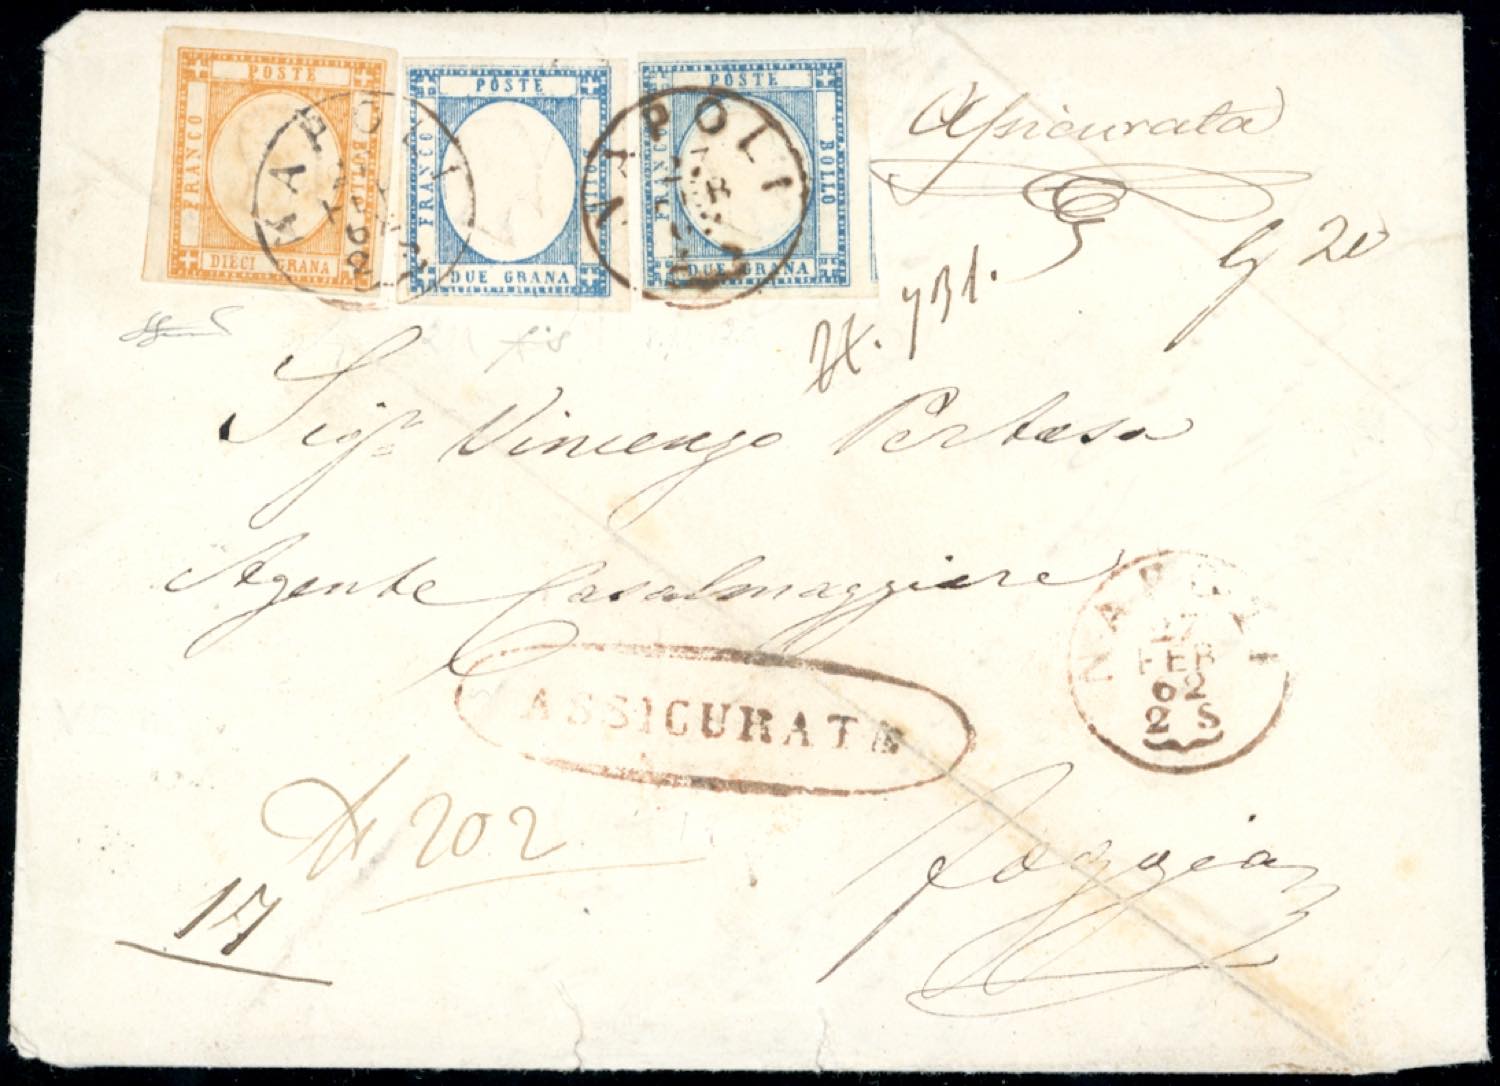 POSTE
FRANCO BOLLO
DIECI GRANA
POSTE
FRANCO BOLLO
DUE GRANA
POSTE
FRANCO BOLLO
DUE GRANA
NAPOLI
NAPOLI
Assicurata
20
Sigr Vincenzo Pertosa
Agente Casalmaggiore
ASSICURATE
NAPOLI
27
FEB
62
2 S
202
Foggia